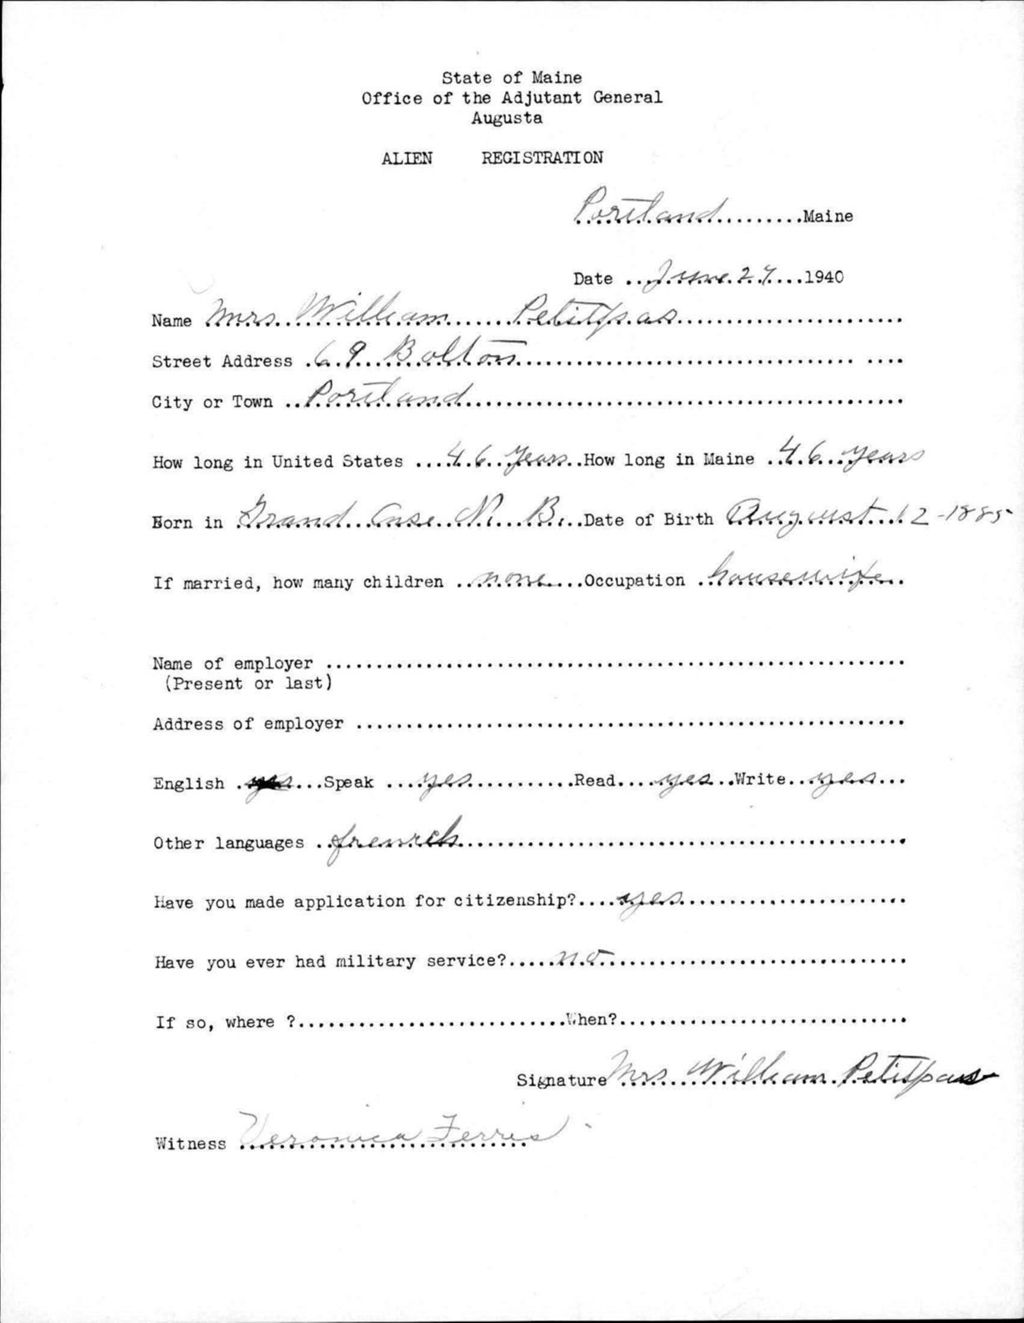 State of Maine
Office of the Adjutant General
Augusta
ALIEN REGISTRATION
Portland.........Maine
Date ...June 27...1940
Name Mrs. William Petitpas
Street Address .69 Bolton
City or Town ..Portland
How long in United States ....46 years..How long in Maine ..46 years
Born in Grand Anse N. B...Date of Birth August 12-1885
If married, how many children ..none...Occupation .housewife..
Name of employer
(Present or last)
Address of employer
English .yes...Speak ....yes...........Read....yes..Write...yes...
Other languages ..french
Have you made application for citizenship?....yes
Have you ever had military service?.....no
If so, where ?...........................When?
Signature Mrs. William Petitpas
Witness Veronica Ferris